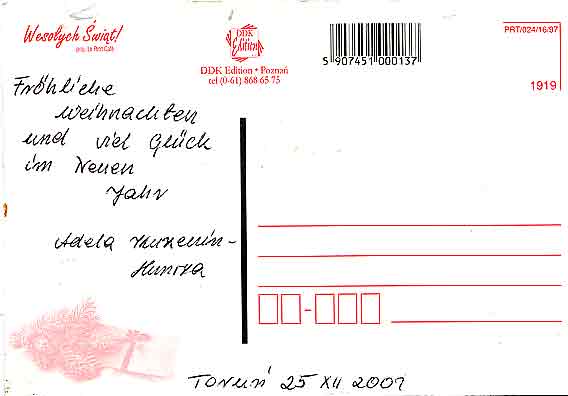 Wesołych Świąt!
DDK
Edition
DDK Edition • Poznań
tel (0-61) 868 65 75
5 907451 000137
PRT/024/16/97
1919
Fröhliche
Weihnachten
und viel Glück
im Neuen
Jahr
Adela
Toruń 25 XII 2001